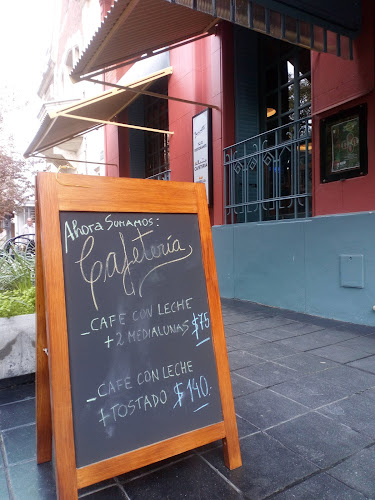 Ahora Sumamos:
Cafetería
- CAFE CON LECHE
+ 2 MEDIALUNAS $75
- CAFE CON LECHE
+ TOSTADO $140.